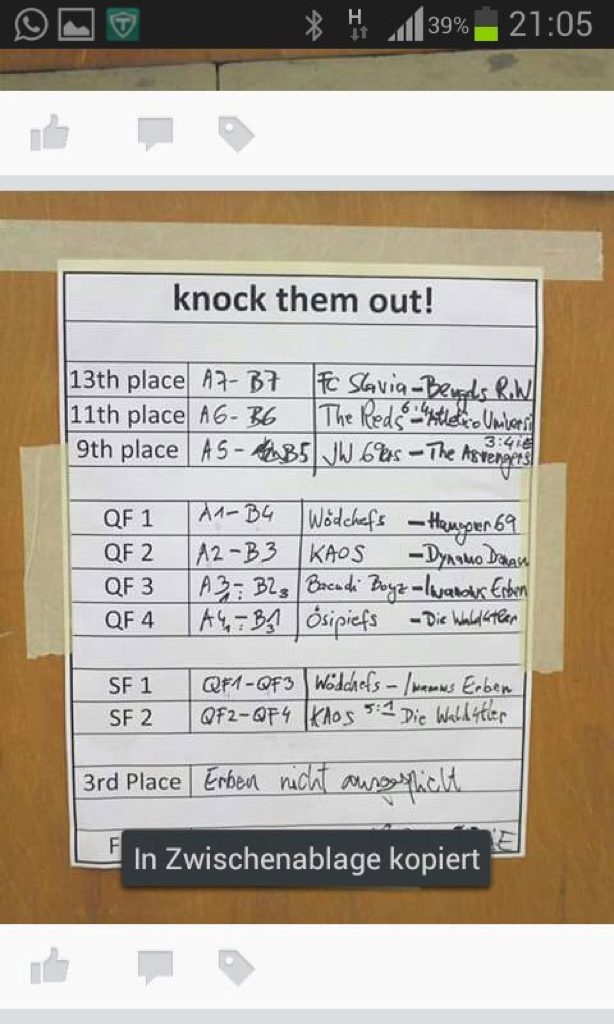 H 39% 21:05
knock them out!
13th place A7-B7 FC Slavia - R.W
11th place A6-B6 The Reds 6:4 Atletico Universi
9th place A5-B5 JW 69ers - The
3:4
QF 1 A1-B4 Wödchefs - Hangover 69
QF 2 A2-B3 KAOS - Dynamo
QF 3 A3-B2 Bacardi Boyz - Erben
QF 4 A4-B1 Ösipiefs - Die Wald4tler
SF 1 QF1-QF3 Wödchefs - Erben
SF 2 QF2-QF4 KAOS 5:1 Die Wald4tler
3rd Place Erben nicht ausgspielt
F
In Zwischenablage kopiert